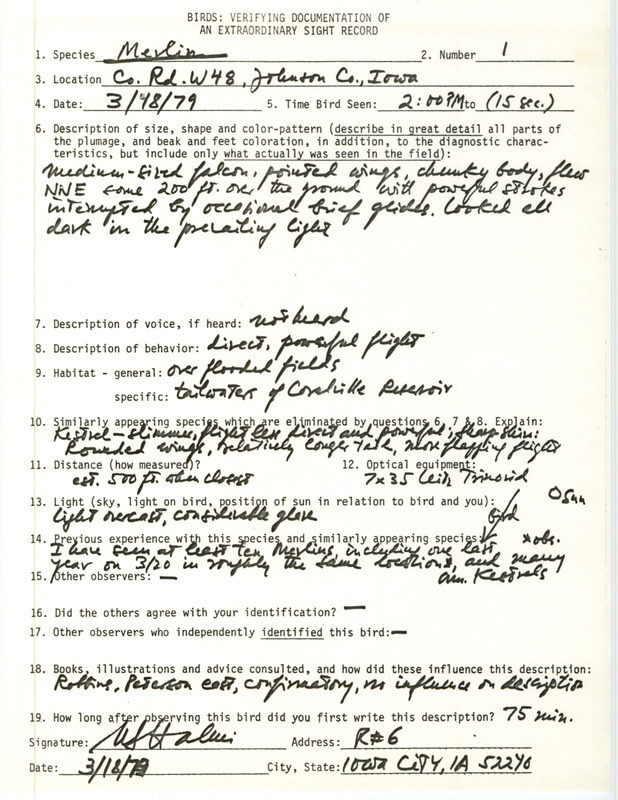 BIRDS: VERIFYING DOCUMENTATION OF
AN EXTRAORDINARY SIGHT RECORD
1. Species Merlin 2. Number 1
3. Location Co. Rd. W48, Johnson Co., Iowa
4. Date: 3/18/79 5. Time Bird Seen: 2:00PM to (15 sec.)
6. Description of size, shape and color-pattern (describe in great detail all parts of
the plumage, and beak and feet coloration, in addition, to the diagnostic charac-
teristics, but include only what actually was seen in the field):
Medium-sized falcon, pointed wings, chunky body, flew
NNE some 200 ft. over the ground with powerful strokes
interrupted by occasional brief glides. Looked all
dark in the prevailing light
7. Description of voice, if heard: not heard
8. Description of behavior: direct, powerful flight
9. Habitat - general: over flooded fields
specific: tailwaters of Coralville Reservoir
10. Similarly appearing species which are eliminated by questions 6, 7 & 8. Explain:
Kestrel - slimmer, flight less direct and powerful; Sharp-shin:
Rounded wings, relatively longer tail, more flapping flight
11. Distance (how measured)? 12. Optical equipment:
est. 500 ft. when closest 7x35 Leitz Trinovid
13. Light (sky, light on bird, position of sun in relation to bird and you): Sun
light overcast, considerable glare Bird
14. Previous experience with this species and similarly appearing species: obs.
I have seen at least ten Merlins, including one last
year on 3/20 in roughly the same location, and many
Am. Kestrels
15. Other observers: —
16. Did the others agree with your identification? —
17. Other observers who independently identified this bird: —
18. Books, illustrations and advice consulted, and how did these influence this description:
Robbins, Peterson east, confirmatory, no influence on description
19. How long after observing this bird did you first write this description? 75 min.
Signature: Address: R#6
Date: 3/18/79 City, State: Iowa City, IA 52240